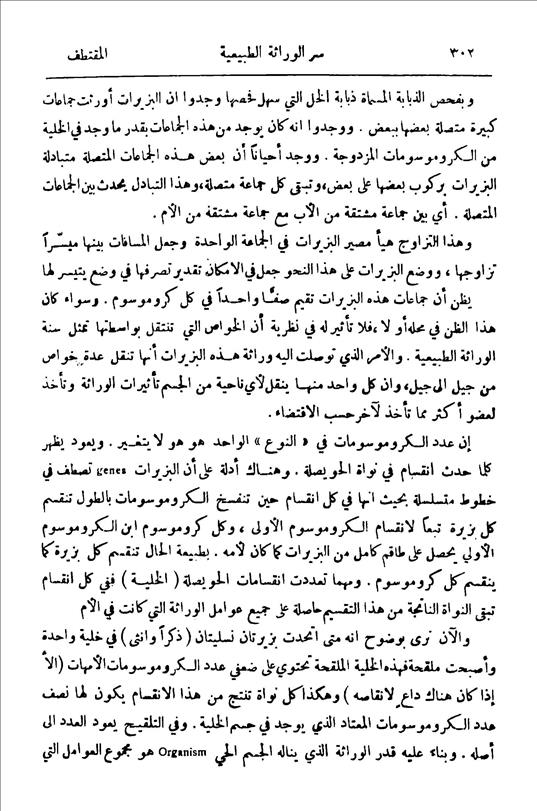 ٣٠٢ سر الوراثة الطبيعية المقتطف
وبفحص الذبابة المسماة ذبابة الخل التي سهل فحصها وجدوا ان البزيرات أورثت جماعات
كبيرة متصلة بعضها ببعض . ووجدوا انه كان يوجد من هذه الجماعات بقدر ما وجد في الخلية
من الكروموسومات المزدوجة . ووجد أحياناً أن بعض هذه الجماعات المتصلة متبادلة
البزيرات بركوب بعضها على بعض، وتبقى كل جماعة متصلة، وهذا التبادل يحدث بين الجماعات
المتصلة . أي بين جماعة مشتقة من الأب مع جماعة مشتقة من الأم .
وهذا التزاوج هيأ مصير البزيرات في الجماعة الواحدة وجعل المسافات بينها ميسّراً
تزاوجها ، ووضع البزيرات على هذا النحو جعل في الامكان تقدير تصرفها في وضع يتيسر لها
يظن أن جماعات هذه البزيرات تقيم صفًّا واحداً في كل كروموسوم . وسواء كان
هذا الظن في محله أو لا ، فلا تأثير له في نظرية أن الخواص التي تنتقل بواسطتها تمثل سنة
الوراثة الطبيعية . والأمر الذي توصلت اليه وراثة هذه البزيرات أنها تنقل عدة خواص
من جيل الى جيل، وان كل واحد منها ينقل لأي ناحية من الجسم تأثيرات الوراثة وتأخذ
لعضو أكثر مما تأخذ لآخر حسب الاقتضاء .
إن عدد الكروموسومات في « النوع » الواحد هو هو لا يتغير . ويعود يظهر
كلما حدث انقسام في نواة الحويصلة . وهناك أدلة على أن البزيرات genes تصطف في
خطوط متسلسلة بحيث انها في كل انقسام حين تنفسخ الكروموسومات بالطول تنقسم
كل بزيرة تبعاً لانقسام الكروموسوم الأولى ، وكل كروموسوم ابن الكروموسوم
الأولي يحصل على طاقم كامل من البزيرات كما كان لأمه . بطبيعة الحال تنقسم كل بزيرة كما
ينقسم كل كروموسوم . ومهما تعددت انقسامات الحويصلة ( الخلية ) ففي كل انقسام
تبقى النواة الناتجة من هذا التقسيم حاصلة على جميع عوامل الوراثة التي كانت في الأم
والآن نرى بوضوح انه متى اتحدت بزيرتان نسليتان ( ذكراً وانثى ) في خلية واحدة
وأصبحت ملقحة فهذه الخلية الملقحة تحتوي على ضعفي عدد الكروموسومات الأمهات (الأ
إذا كان هناك داعٍ لانقاصه ) وهكذا كل نواة تنتج من هذا الانقسام يكون لها نصف
عدد الكروموسومات المعتاد الذي يوجد في جسم الخلية . وفي التلقيح يعود العدد الى
أصله . وبناء عليه قدر الوراثة الذي يناله الجسم الحي Organism هو مجموع العوامل التي